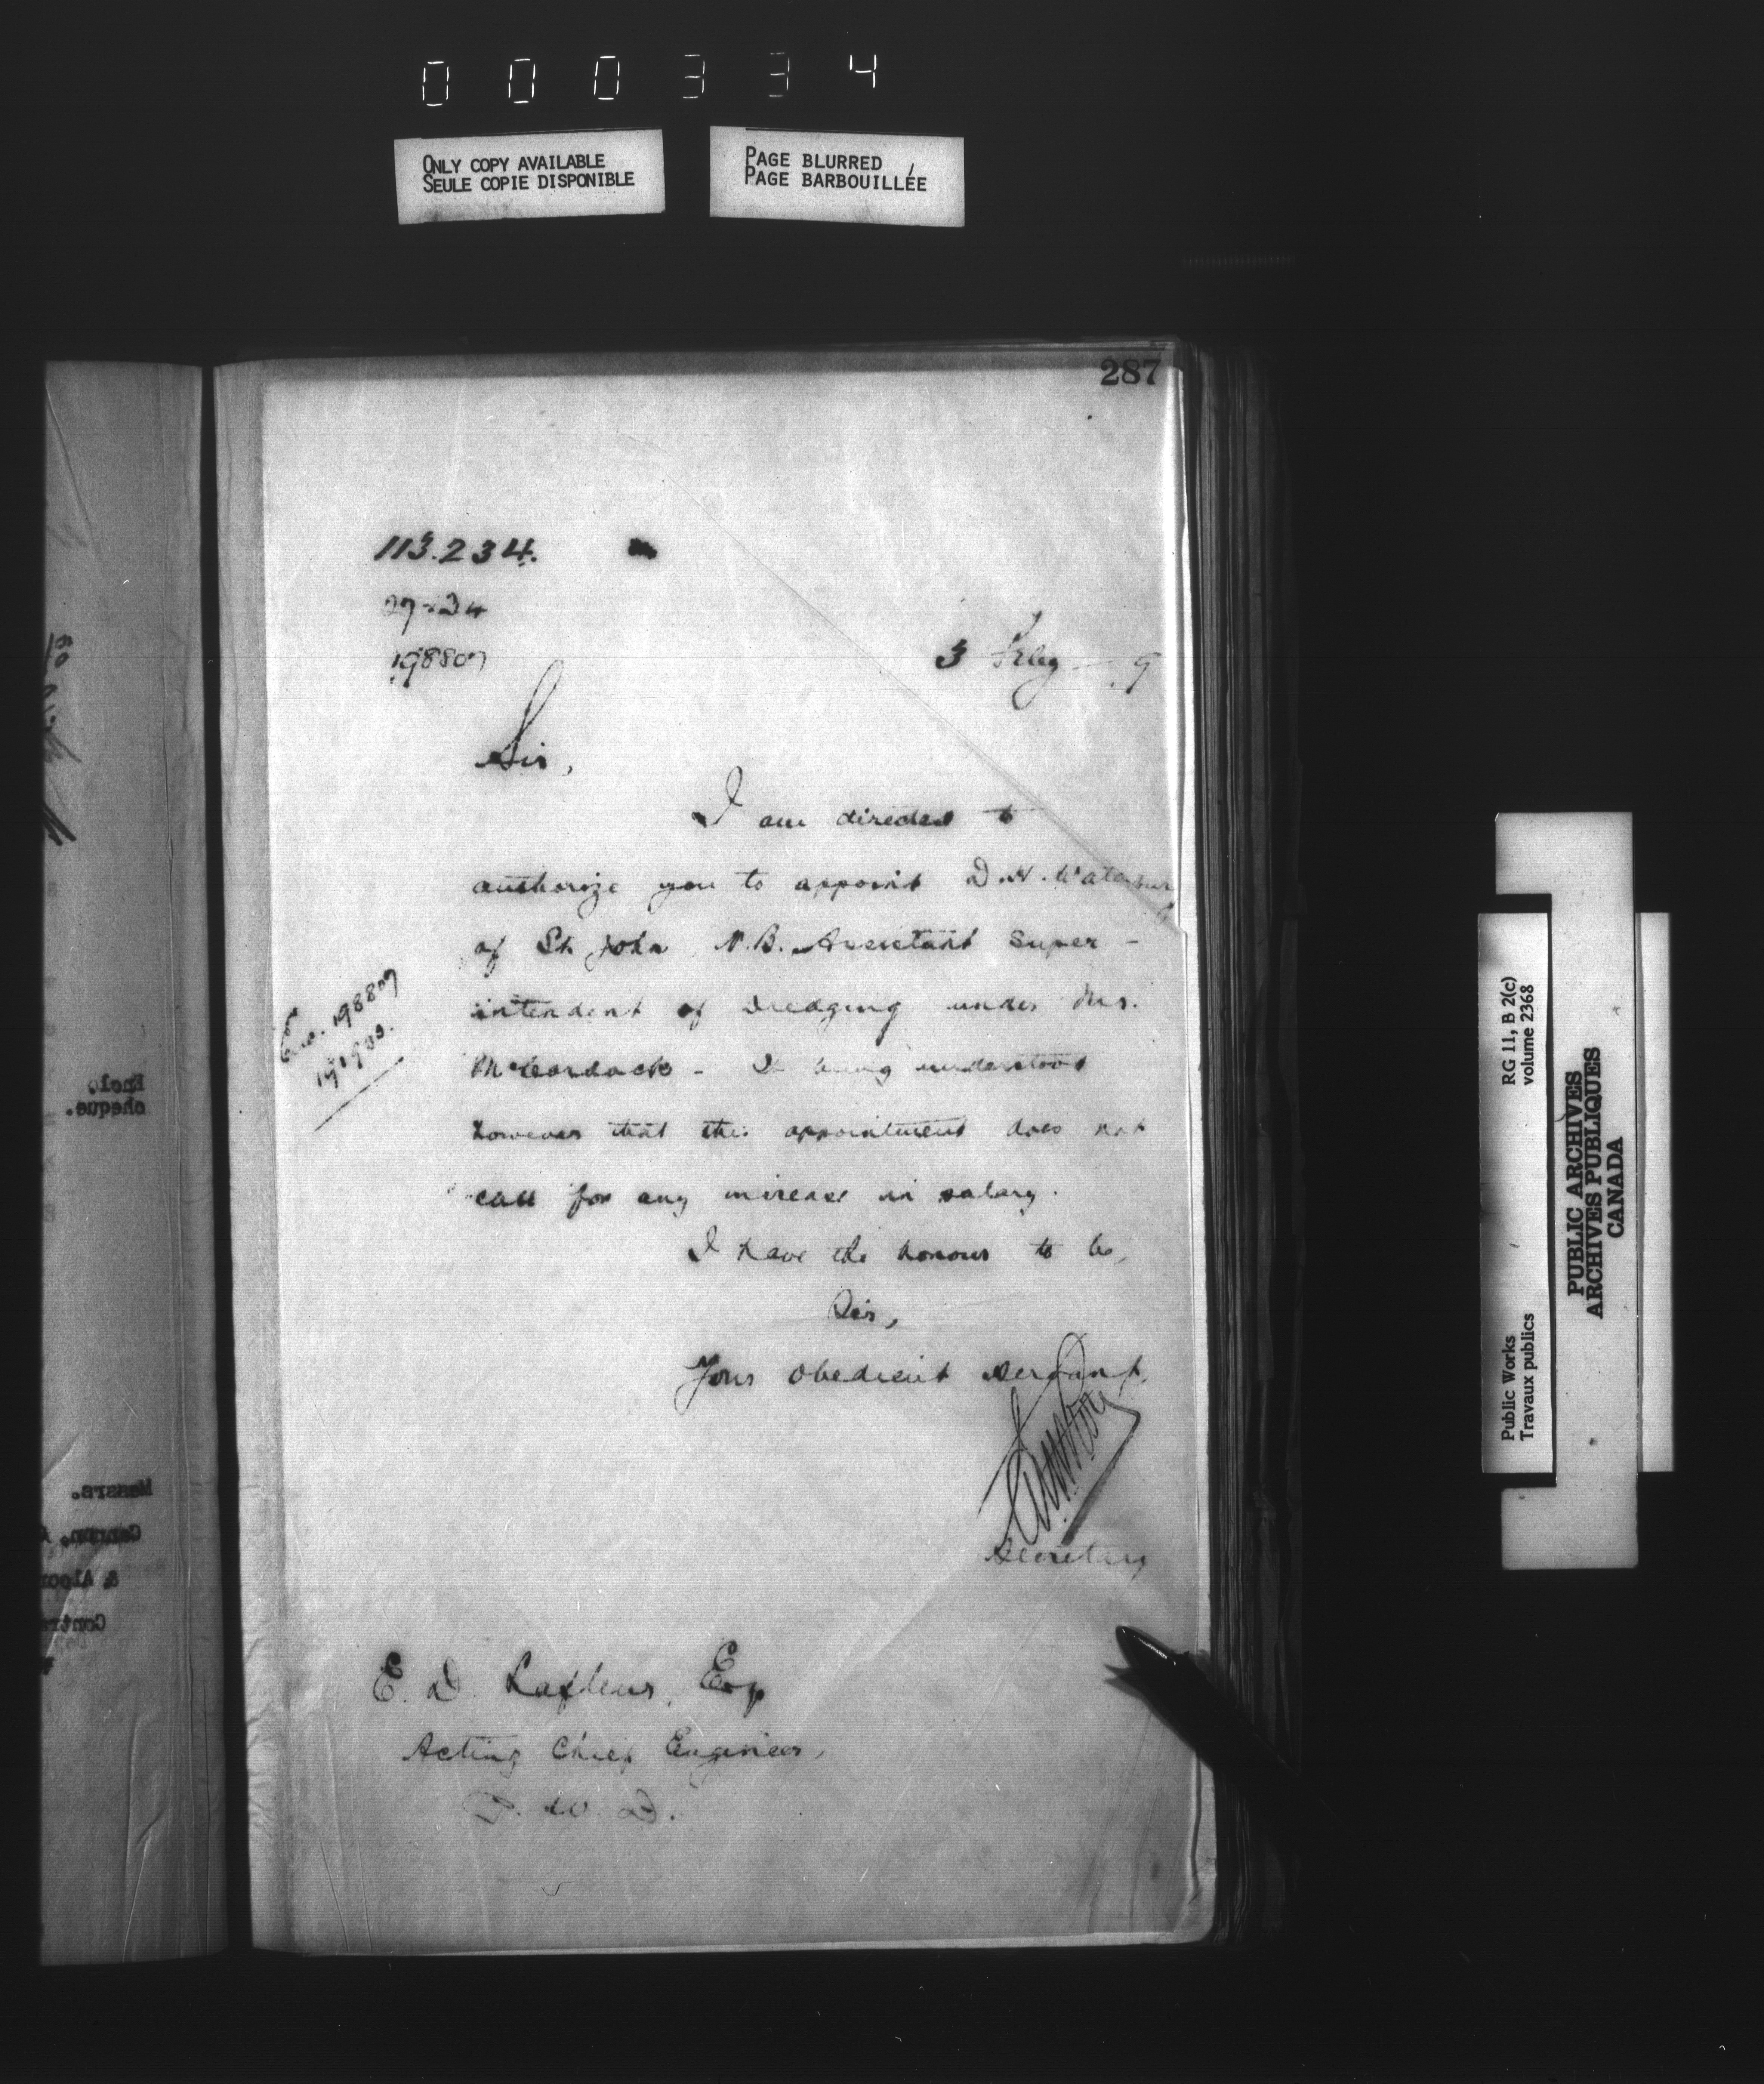 000334
ONLY COPY AVAILABLE
SEULE COPIE DISPONIBLE
PAGE BLURRED
PAGE BARBOUILLÉE
287
113.234.
198807
3 Feby 9
Sir,
I am directed to
authorize you to appoint D. H. Waterbury
of St. John N.B. Assistant Super-
intendent of Dredging under Mr.
McCordock - It being understood
however that this appointment does not
call for any increase in salary.
I have the honour to be,
Sir,
Your obedient servant,
Secretary
Enc. 198807
E. D. Lafleur, Esq
Acting Chief Engineer,
P. W. D.
Encl.
cheque.
Messrs.
RG 11, B 2(c)
volume 2368
Public Works
Travaux publics
PUBLIC ARCHIVES
ARCHIVES PUBLIQUES
CANADA